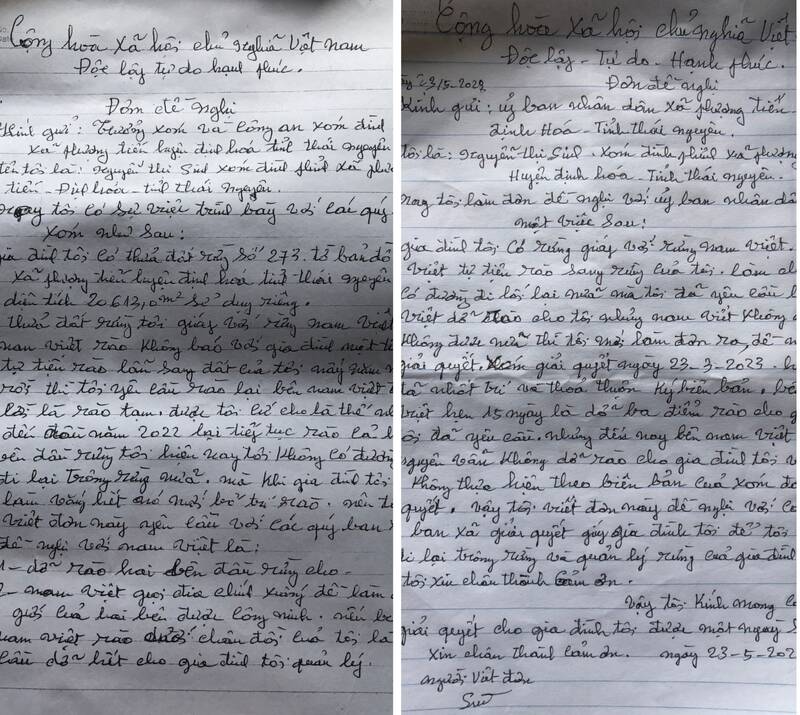 Cộng hòa xã hội chủ nghĩa Việt nam
Độc lập tự do hạnh phúc.
Đơn đề nghị
Kính gửi: Trưởng xóm và công an xóm đình
xã phượng tiến huyện định hoá tỉnh thái nguyên
tên tôi là: nguyễn thị Sinh xóm đình phỉnh xã phượ
tiến - Định hoá - tỉnh thái nguyên.
nay tôi có sự việc trình bày với các quý
xóm như sau:
gia đình tôi có thửa đất rừng số 273. tờ bản đồ
xã phượng tiến huyện định hoá tỉnh thái nguyên
diện tích 20613,0m² sử dụng riêng.
thửa đất rừng tôi giáp với rừng nam việt
nam việt rào không báo với gia đình một t
tự tiện rào lấn sang đất của tôi mấy năm n
rồi thì tôi yêu cầu rào lại bên nam việt
lời là rào tạm. được tôi cứ cho là thế
đến đầu năm 2022 lại tiếp tục rào cả
bên đầu rừng tôi hiện nay tôi không có đường
đi lại trông rừng nữa. mà khi gia đình tôi
làm vắng hết nó mới rào. nên tô
viết đơn này yêu cầu với các quý ban
đề nghị với nam việt là:
1 - dỡ rào hai bên đầu rừng cho
2 - nam việt gọi địa chính xuống để làm
giới của hai bên được công minh. nếu
nam việt rào dưới chân đồi của tôi là
cầu dỡ hết cho gia đình tôi quản lý.
Cộng hòa xã hội chủ nghĩa Việt
Độc lập - Tự do - Hạnh phúc.
23/5-2023
Đơn đề nghị
Kính gửi: uỷ ban nhân dân xã phượng tiến -
định Hoá - Tỉnh thái nguyên.
tôi là: nguyễn thị Sinh. xóm đình phỉnh xã phượng
Huyện định hoá - Tỉnh thái nguyên.
nay tôi làm đơn đề nghị với uỷ ban nhân dân
một việc sau:
gia đình tôi có rừng giáp với rừng nam việt.
việt tự tiện rào sang rừng của tôi. làm
có đường đi lối lại nữa mà tôi đã yêu cầu
việt dỡ rào cho tôi nhưng nam việt không
không được nữa thì tôi mới làm đơn ra, đề n
giải quyết. xóm giải quyết ngày 23-3-2023.
đã nhất trí và thoả thuận ký biên bản. bê
việt hẹn 15 ngày là dỡ ba điểm rào cho g
tôi đã yêu cầu. nhưng đến nay bên nam việt
nguyên vẫn không dỡ rào cho gia đình tôi v
không thực hiện theo biên bản của xóm đã
quyết. vậy tôi viết đơn này đề nghị với cá
ban xã giải quyết giúp gia đình tôi để tôi
đi lại trông rừng và quản lý rừng của gia đình
tôi xin chân thành cảm ơn.
vậy tôi kính mong
giải quyết cho gia đình tôi được một ngày
xin chân thành cảm ơn. ngày 23-5-202
người viết đơn